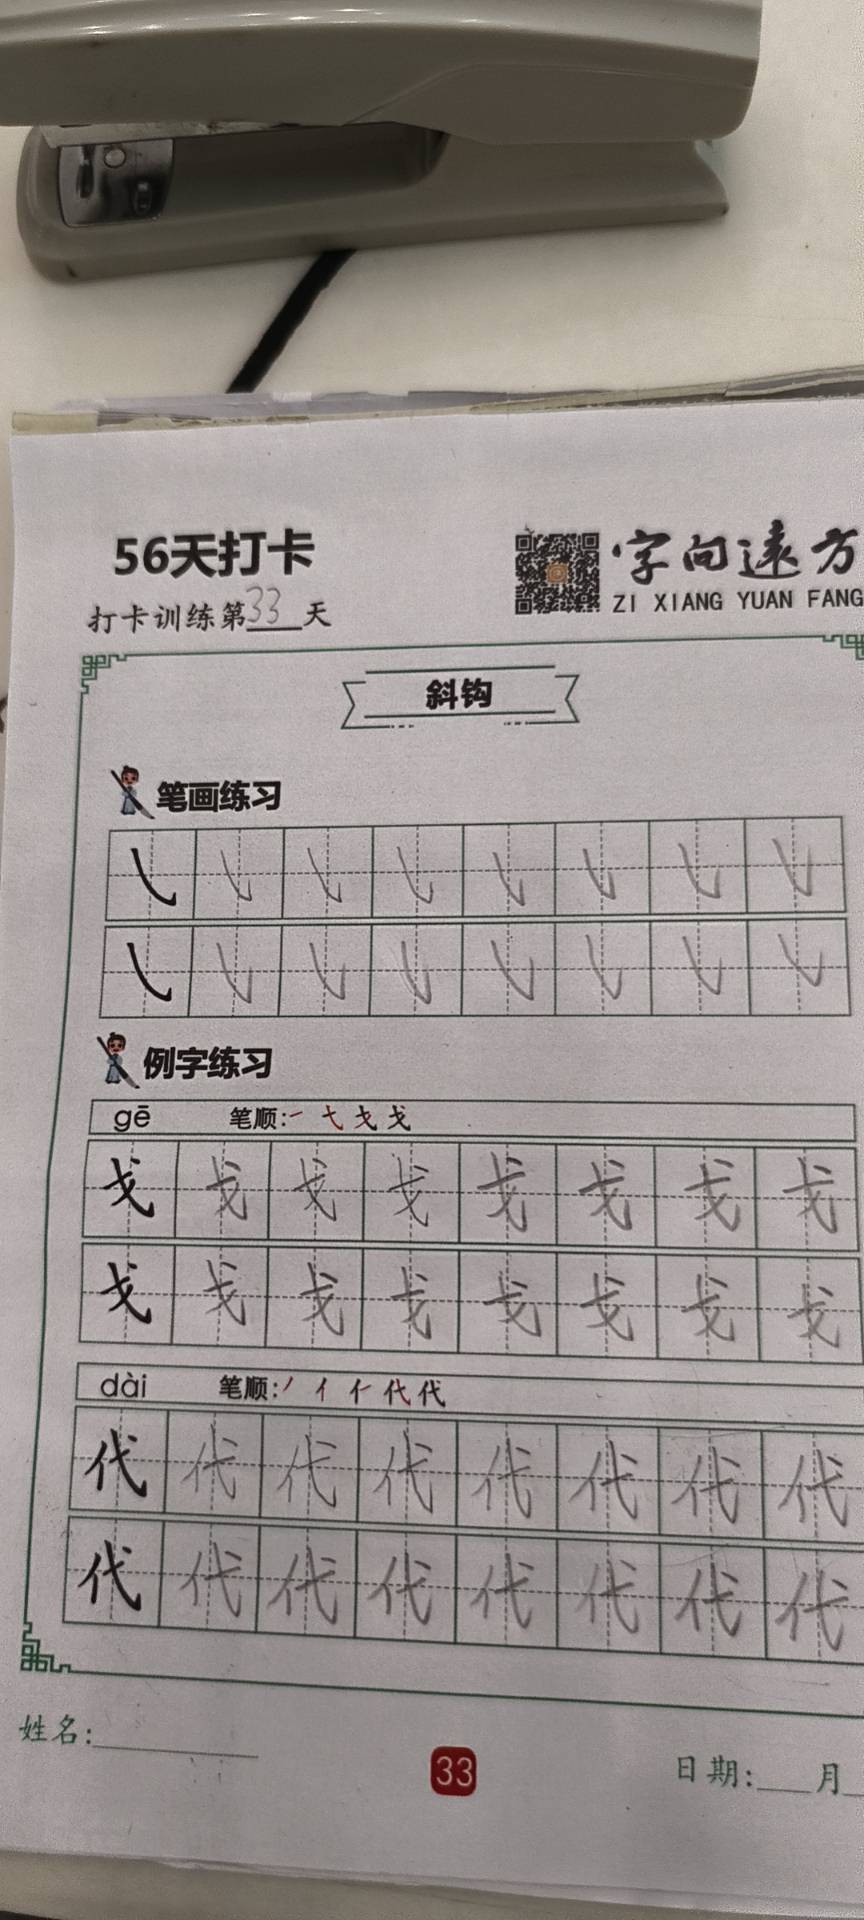 56天打卡
字向远方
打卡训练第33天
ZI XIANG YUAN FANG
斜钩
笔画练习
㇂ ㇂ ㇂ ㇂ ㇂ ㇂ ㇂ ㇂
㇂ ㇂ ㇂ ㇂ ㇂ ㇂ ㇂ ㇂
例字练习
gē 笔顺:一 弋 戈 戈
戈 戈 戈 戈 戈 戈 戈 戈
戈 戈 戈 戈 戈 戈 戈 戈
dài 笔顺:丿 亻 仁 代 代
代 代 代 代 代 代 代 代
代 代 代 代 代 代 代 代
姓名:
33
日期: 月